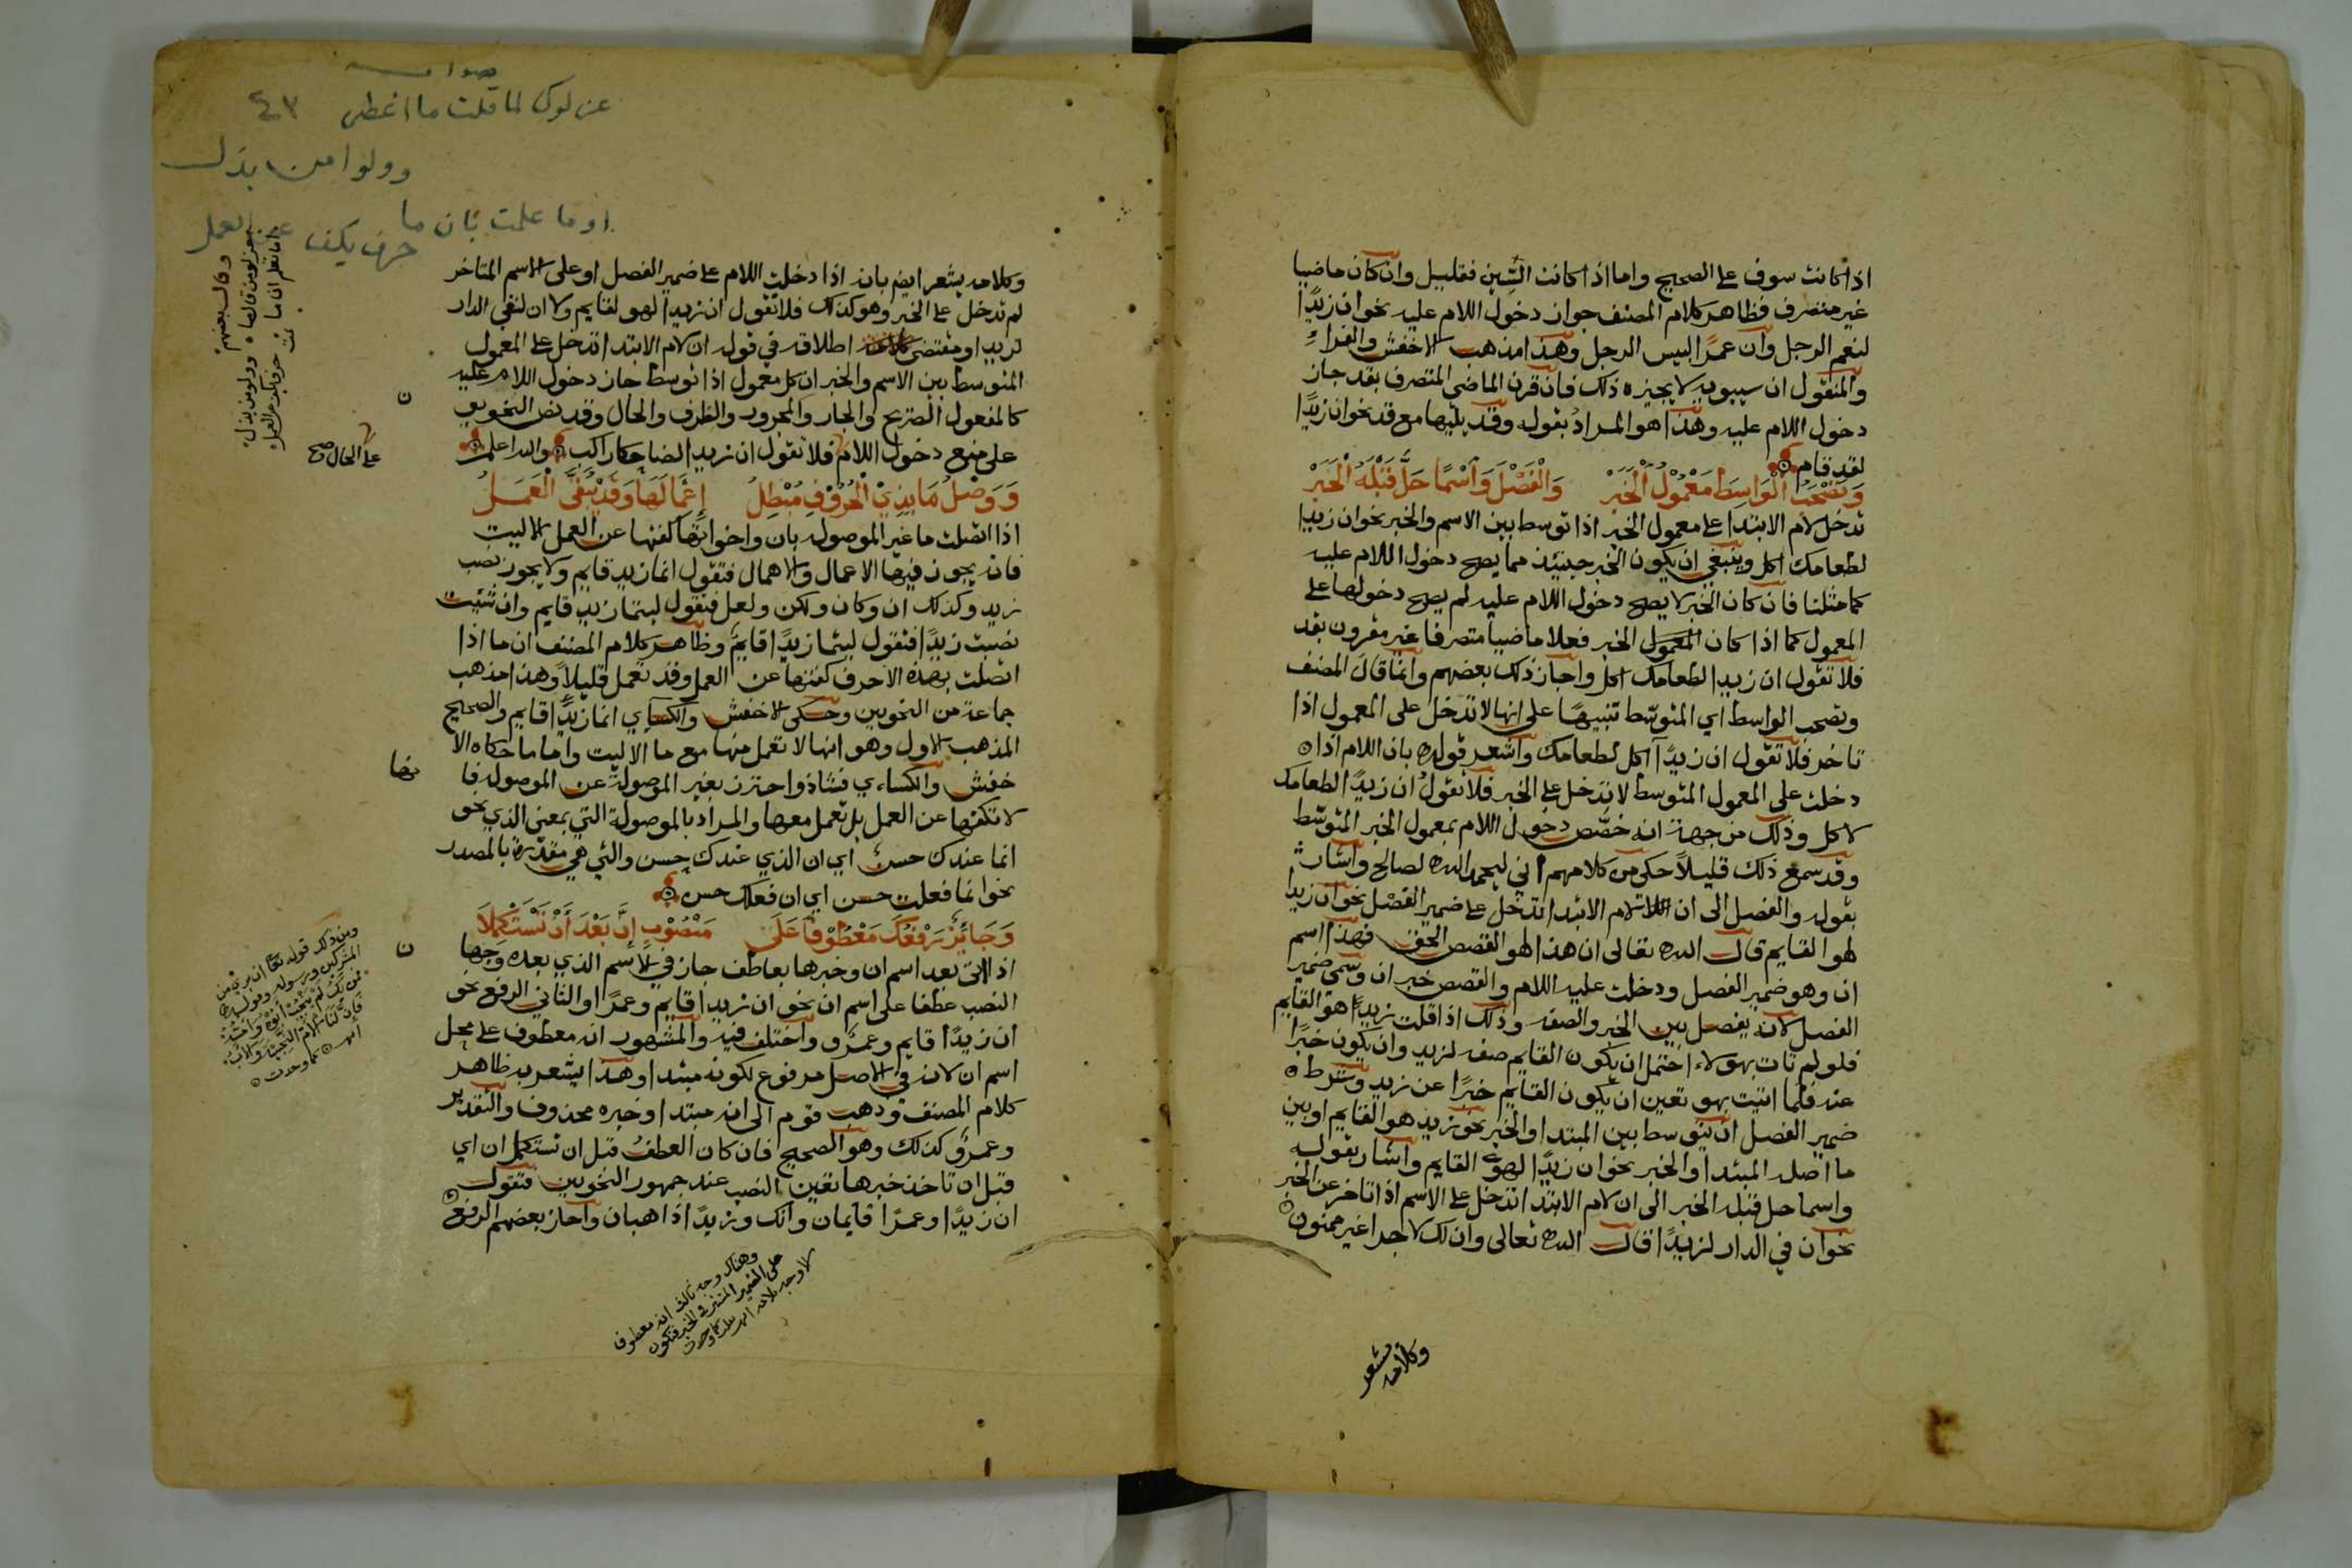 اذا كانت سوف على الصحيح واما اذا كانت السّين فقليل وان كان ماضيا
غير متصرف فظاهر كلام المصنف جواز دخول اللام عليه نحو ان زيدًا
لنعم الرجل وان عمرًا لبيس الرجل وهذا مذهب الاخفش والفراء
والمنقول ان سيبويه لا يجيزه ذلك فان قرن الماضي المتصرف بقد جاز
دخول اللام عليه وهذا هو المراد بقوله وقد يليها مع قد نحو ان زيدًا
لقد قام
وَتَصْحَبُ الْوَاسِطَ مَعْمُوْلُ الْخَبَرْ وَالْفَصْلَ وَاسْمًا حَلَّ قَبْلَهُ الْخَبَرْ
تدخل لام الابتدا على معمول الخبر اذا توسط بين الاسم والخبر نحو ان زيدا
لطعامك اكل وينبغي ان يكون الخبر حينئذ مما يصح دخول اللام عليه
كما مثلنا فان كان الخبر لا يصح دخول اللام عليه لم يصح دخولها على
المعمول كما اذا كان المعمول الخبر فعلا ماضيا متصرفا غير مقرون بقد
فلا تقول ان زيدا لطعامك اكل واجاز ذلك بعضهم وانما قال المصنف
وتصحب الواسط اي المتوسّط تنبيهًا على انها لا تدخل على المعمول اذا
تاخر فلا تقول ان زيدًا آكل لطعامك واشعر قوله بان اللام اذا
دخلت على المعمول المتوسط لا تدخل على الخبر فلا تقول ان زيدًا لطعامك
لاكل وذلك من جهة انه خصّص دخول اللام بمعمول الخبر المتوسّط
وقد سمع ذلك قليلاً حكي من كلامهم اني لبحمد الله لصالح واشار
بقوله والفصل الى ان لام الابتدا تدخل على ضمير الفصل نحو ان زيدا
لهو القايم قال الله تعالى ان هذا لهو القصص الحق فهذا اسم
ان وهو ضمير الفصل ودخلت عليه اللام والقصص خبر ان وسمي ضمير
الفصل لانه يفصل بين الخبر والصفه وذلك اذا قلت زيدٌ هو القايم
فلو لم تات بهو لاحتمل ان يكون القايم صفه لزيد وان يكون خبرًا
عنه فلما اتيت بهو تعين ان يكون القايم خبرًا عن زيد وشرط
ضمير الفصل ان يتوسط بين المبتدا والخبر نحو زيد هو القايم او بين
ما اصله المبتدا والخبر نحو ان زيدًا لهو القايم واشار بقوله
واسما حل قبله الخبر الى ان لام الابتدا تدخل على الاسم اذا تاخر عن الخبر
نحو ان في الدار لزيدًا قال الله تعالى وان لك لاجرا غير ممنون
وكلامه يشعر
عن لوك لما قلت ما اعطى ٤٣
وولوا من بذل
او ما علمت بان ما
حرف يكف عن العمل
وكلامه يشعر ايض بانه اذا دخلت اللام على ضمير الفصل او على الاسم المتاخر
لم تدخل على الخبر وهو كذلك فلا تقول ان زيدا لهو لقايم ولا ان لفي الدار
لزيدا ومقتضى اطلاقه في قوله ان لام الابتدا تدخل على المعمول
المتوسط بين الاسم والخبر ان كل معمول اذا توسط جاز دخول اللام عليه
كالمفعول الصريح والجار والمجرور والظرف والحال وقد نص النحويون
على منع دخول اللام فلا تقول ان زيدا لضاحكا راكب والله اعلم
على الحال صح
وَوَصْلُ مَا بِذِيْ الْحُرُوْفِ مُبْطِلُ إِعْمَالَهَا وَقَدْ يُبَقَّى الْعَمَلُ
اذا اتصلت ما غير الموصوله بان واخواتها كفتها عن العمل الا ليت
فانه يجوز فيها الاعمال والاهمال فتقول انما زيد قايم ولا يجوز نصب
زيد وكذلك ان وكان ولكن ولعل فتقول ليتما زيد قايم وان شئت
نصبت زيدًا فتقول ليتما زيدًا قايمٌ وظاهر كلام المصنف ان ما اذا
اتصلت بهذه الاحرف كفتها عن العمل وقد تعمل قليلاً وهذا مذهب
جماعة من النحويين وحكى الاخفش والكسايي انما زيدًا قايم والصحيح
المذهب الاول وهو انها لا تعمل منها مع ما الا ليت واما ما حكاه الا
خفش والكساءي فشاذ واحترز بغير الموصولة عن الموصوله فا
لا تكفها عن العمل بل تعمل معها والمراد بالموصولة التي بمعنى الذي نحو
انما عندك حسنٌ اي ان الذي عندك حسن والتي هي مقدّرة بالمصدر
نحو انما فعلت حسن اي ان فعلك حسن
وَجَائِزٌ رَفْعُكَ مَعْطُوْفًا عَلَى مَنْصُوْبِ إِنَّ بَعْدَ أَنْ تَسْتَكْمِلَا
اذا اتى بعد اسم ان وخبرها بعاطف جاز في الاسم الذي بعده وجها
النصب عطفا على اسم ان نحو ان زيدا قايم وعمرًا والثاني الرفع نحو
ان زيدًا قايم وعمرٌو واختلف فيه والمشهور انه معطوف على محل
اسم ان لانه في الاصل مرفوع لكونه مبتدا وهذا يشعر به ظاهر
كلام المصنف وذهب قوم الى انه مبتدا وخبره محذوف والتقدير
وعمرٌو كذلك وهو الصحيح فان كان العطف قبل ان تستكمل ان اي
قبل ان تاخذ خبرها تعين النصب عند جمهور النحويين فتقول
ان زيدًا وعمرًا قايمان وانك وزيدًا ذاهبان واجاز بعضهم الرفع
وهناك وجه ثالث انه معطوف
على الضمير المستتر في الخبر فتكون